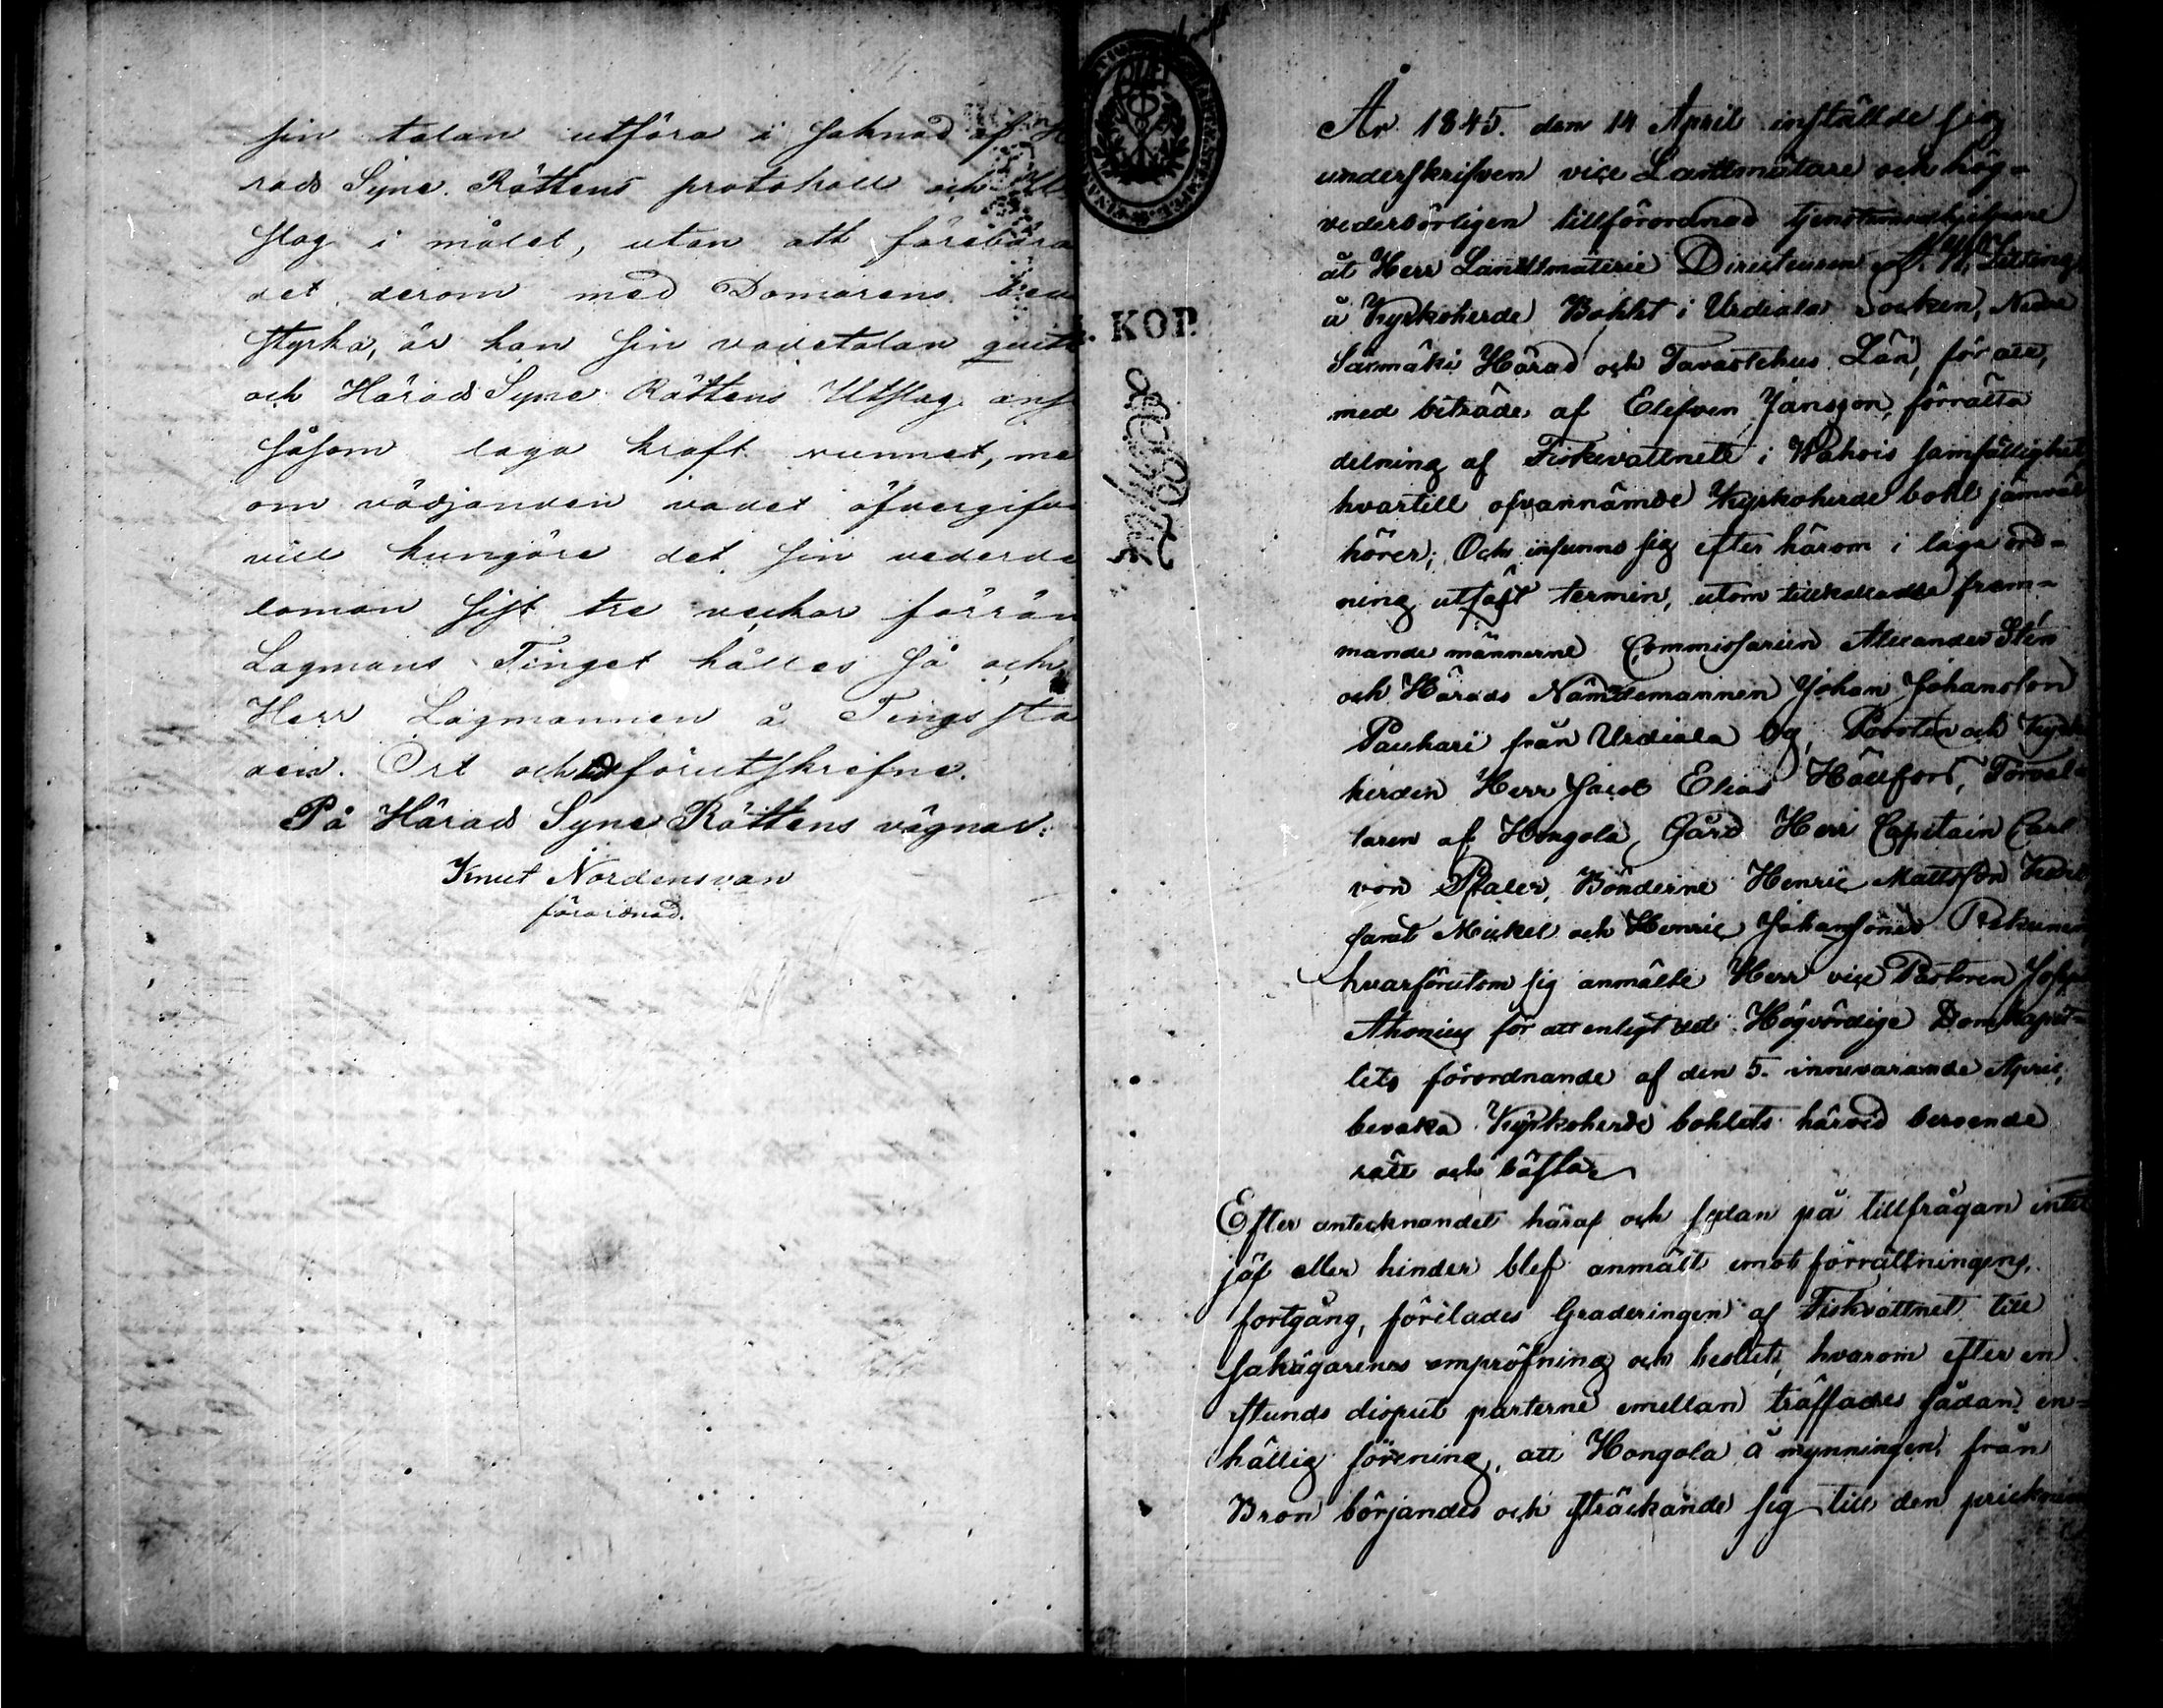 sin talan utföra i saknad af
rads Syne Rättens protokoll och
slag i målet, utan att förebära
det derom med Domarens
styrka, är han sin vadetalan
och Härads Syne Rättens Utslag
såsom laga kraft vunnet,
om vädjanden vadet öfvergifva
vill kungöre det sin
loman sist tre veckor förrän
Lagmans Tinget hålles så och
Herr Lagmannen å Tings
den. Ort och förutskrifne.
På Härad Syne Rättens vägnar:
Knut Nordensvan
förordnad.
KOP.
År 1845. den 14 April inställde sig
underskrifven vice Landtmätare och hög-
vederbörligen tillförordnad
åt Herr Landtmäterie Directeuren
å Kyrkoherde Bohlet i Urdiala Socken,
Säxmäki Härad och Tavastehus Län, för att,
med biträde af Elefven Jansson, förrätta
delning af Fiskevattnett i samfällighet
hvartill ofvannämde Kyrkoherde bohl jämväl
hörer; Och infunno sig efter härom i laga ord-
ning utsatt termin, utom tillkallade främ-
mande männerne Commissarien Alexander Sten
och Härads Nämdemannen Johan Johansson
Paukari från Urdiala by, Prosten och
herden Herr Jacob Elias Hällfors, Förval-
taren af Hongola Gård Herr Capitain Carl
von Pfaler, Bönderne Henric Mattsson
samt Mickel och Henric Johanssöner
hvarförutom sig anmälte Herr vice Pastoren
Ahonius för att enligt det Högvördige Domkapit-
lets förordnande af den 5. innevarande April,
bevaka Kyrkoherde bohlets härvid beroende
rätt och bästa.
Efter antecknandet häraf och sedan på tillfrågan intet
jäf eller hinder blef anmält emot förrättningens
fortgång, förelades Graderingen af Fiskvattnet till
sakägarenes ompröfning och beslut, hvarom efter en
stunds disput parterne emellan träffades sådan en-
hällig förening, att Hongola å mynningen från
Bron börjandes och sträckande sig till den